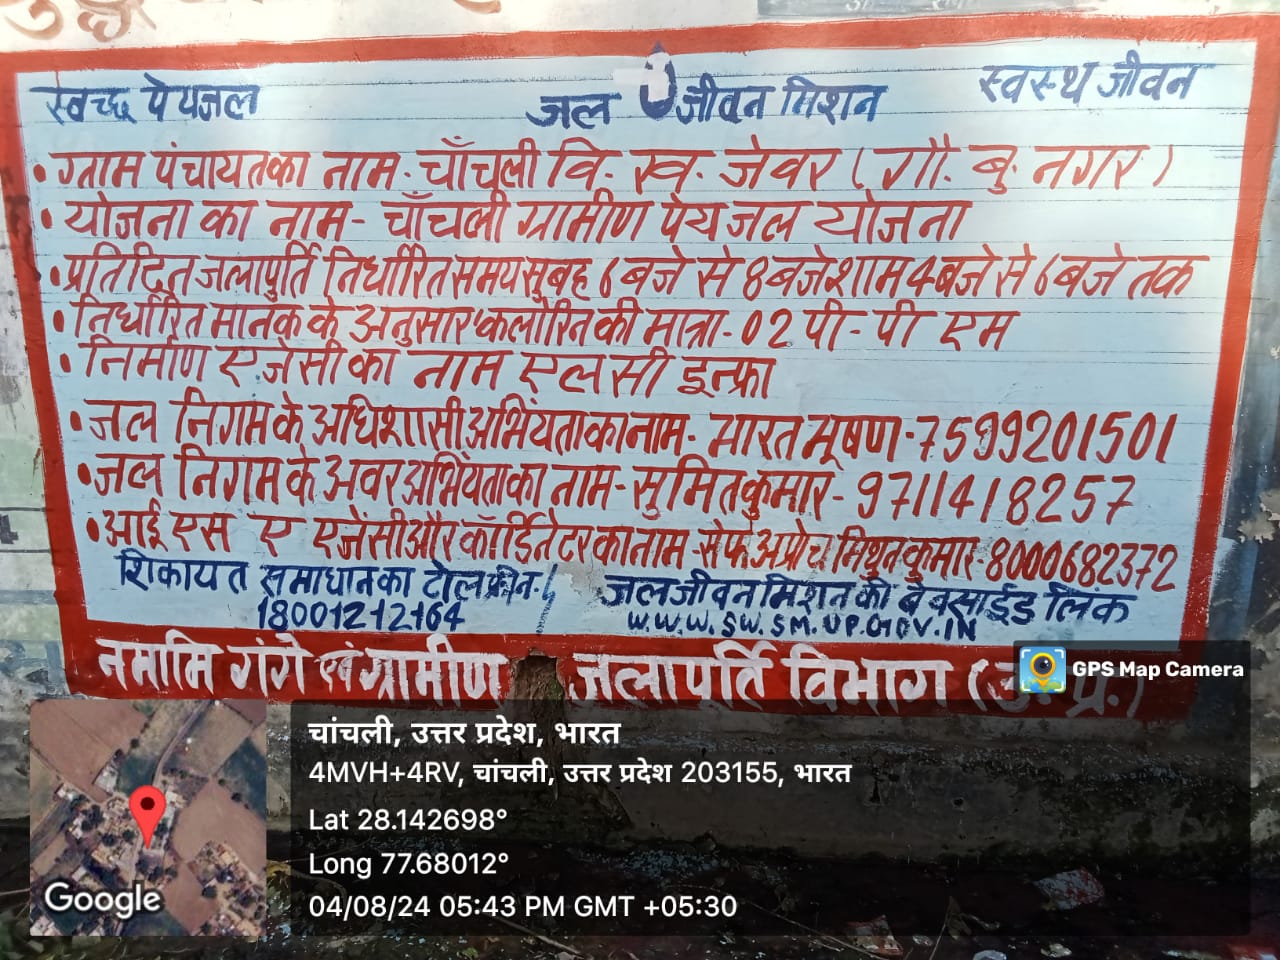 स्वच्छ पेयजल जल जीवन मिशन स्वस्थ जीवन
• ग्राम पंचायत का नाम - चाँचली वि. ख. जेवर ( गौ. बु. नगर )
• योजना का नाम - चाँचली ग्रामीण पेयजल योजना
• प्रतिदिन जलापुर्ति निर्धारित समय सुबह 6 बजे से 8 बजे शाम 4 बजे से 6 बजे तक
• निर्धारित मानक के अनुसार कलोरिन की मात्रा - 02 पी - पी एम
• निर्माण एजेंसी का नाम एल सी इन्फ्रा
• जल निगम के अधिशासी अभियंता का नाम - भारत भूषण - 7599201501
• जल निगम के अवर अभियंता का नाम - सुमित कुमार - 9711418257
• आई एस ए एजेंसी और कॉर्डिनेटर का नाम - सेफ अप्रोच मिथुन कुमार - 8000682372
शिकायत समाधान का टोल फ्री न.
18001212164
जल जीवन मिशन की वेबसाईड लिंक
W.W.W.SW.SM.UP.GOV.IN
नमामि गंगे एवं ग्रामीण जलापूर्ति विभाग (उ. प्र.)
GPS Map Camera
चांचली, उत्तर प्रदेश, भारत
4MVH+4RV, चांचली, उत्तर प्रदेश 203155, भारत
Lat 28.142698°
Long 77.68012°
04/08/24 05:43 PM GMT +05:30
Google